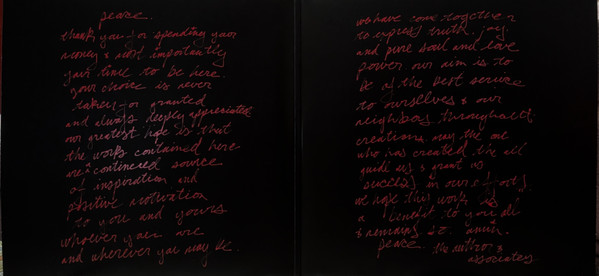 peace.
thank you for spending your
money & most importantly
your time to be here.
your choice is never
taken for granted
and always deeply appreciated
our greatest hope is that
the works contained here
are a continued source
of inspiration and
positive motivation
to you and yours
whoever you are
and wherever you may be.
we have come together
to express truth, joy
and pure soul and love
power our aim is to
be of the best service
to ourselves & our
neighbors throughout
creation. may the one
who has created the all
guide us & grant us
success in our effort
we hope this work is
a benefit to you
& remains so. amin.
peace. the author &
associates